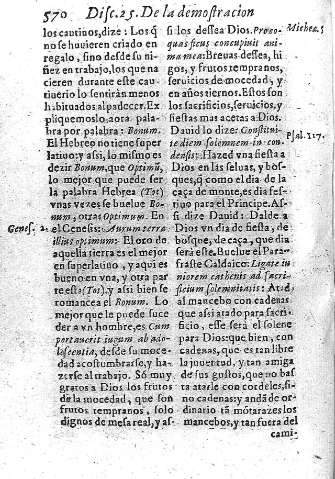 570 Disc. 25. De la demostracion
los cautiuos, dize: Los q̃
no se huuieren criado en
regalo, sino desde su ni-
ñez en trabajo, los que na
cieren durante este cau-
tiuerio lo sentiràn menos
habituados al padecer. Ex
pliquemoslo aora pala-
bra por palabra: Bonum.
El Hebreo no tiene super
latiuo: y assi, lo mismo es
dezir Bonum, que Optimũ,
lo mejor que puede ser
la palabra Hebrea (Tot)
vnas vezes se buelue Bo-
num, otras Optimum. En
Genes. 2.
el Genesis: Aurum terræ
illius optimum: El oro de
aquella tierra es el mejor
en superlatiuo, y aqui es
bueno en vna, y otra par
te està (Tot), y assi bien se
romancea el Bonum. Lo
mejor que le puede suce
der a vn hombre, es Cum
portauerit iugum ab ado-
lescentia, desde su moce-
dad acostumbrarse, y ha-
zerse al trabajo. Sõ muy
gratos a Dios los frutos
de la mocedad, que son
frutos tempranos, solo
dignos de mesa real, y as-
si los dessea Dios. Præco-
Micheæ. 7
quas ficus concupiuit ani-
ma mea: Breuas dessea, hi-
gos, y frutos tempranos,
seruicios de mocedad, y
en años tiernos. Estos son
los sacrificios, seruicios, y
fiestas mas acetas a Dios.
Dauid lo dize: Constitui-
Psal. 117.
te diem solemnem in con-
densis: Hazed vna fiesta a
Dios en las seluas, y bos-
ques, q̃ como el dia de la
caça de monte, es dia fes-
tiuo para el Principe. As-
si dize Dauid: Dalde a
Dios vn dia de fiesta, de
bosque, de caça, que dia
serà este. Buelue el Para-
fraste Caldaico: Ligate iu
niorem cathenis ad sacri-
ficium solemnitatis: Atad
al mancebo con cadenas
que assi atado para sacri-
ficio, esse serà el solene
para Dios: que bien, con
cadenas, que es tan libre
la juuentud, y tan amiga
de su gusto, que no bas
ta atarle con cordeles, si-
no cadenas: y andã de or-
dinario tã mõtarazes los
mancebos, y tan fuera del
cami-